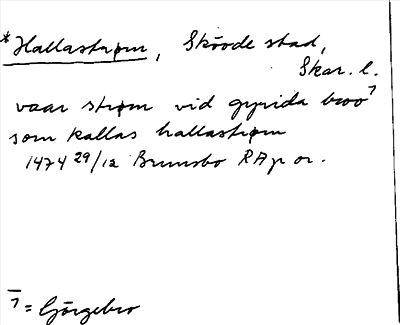 *Hallastrøm, Skövde stad,
Skar. l.
vaar strøm vid gyrida broo ⁊
som kallas hallastrøm
1474 29/12 Brunsbo RAp or.
⁊ = Görgebro